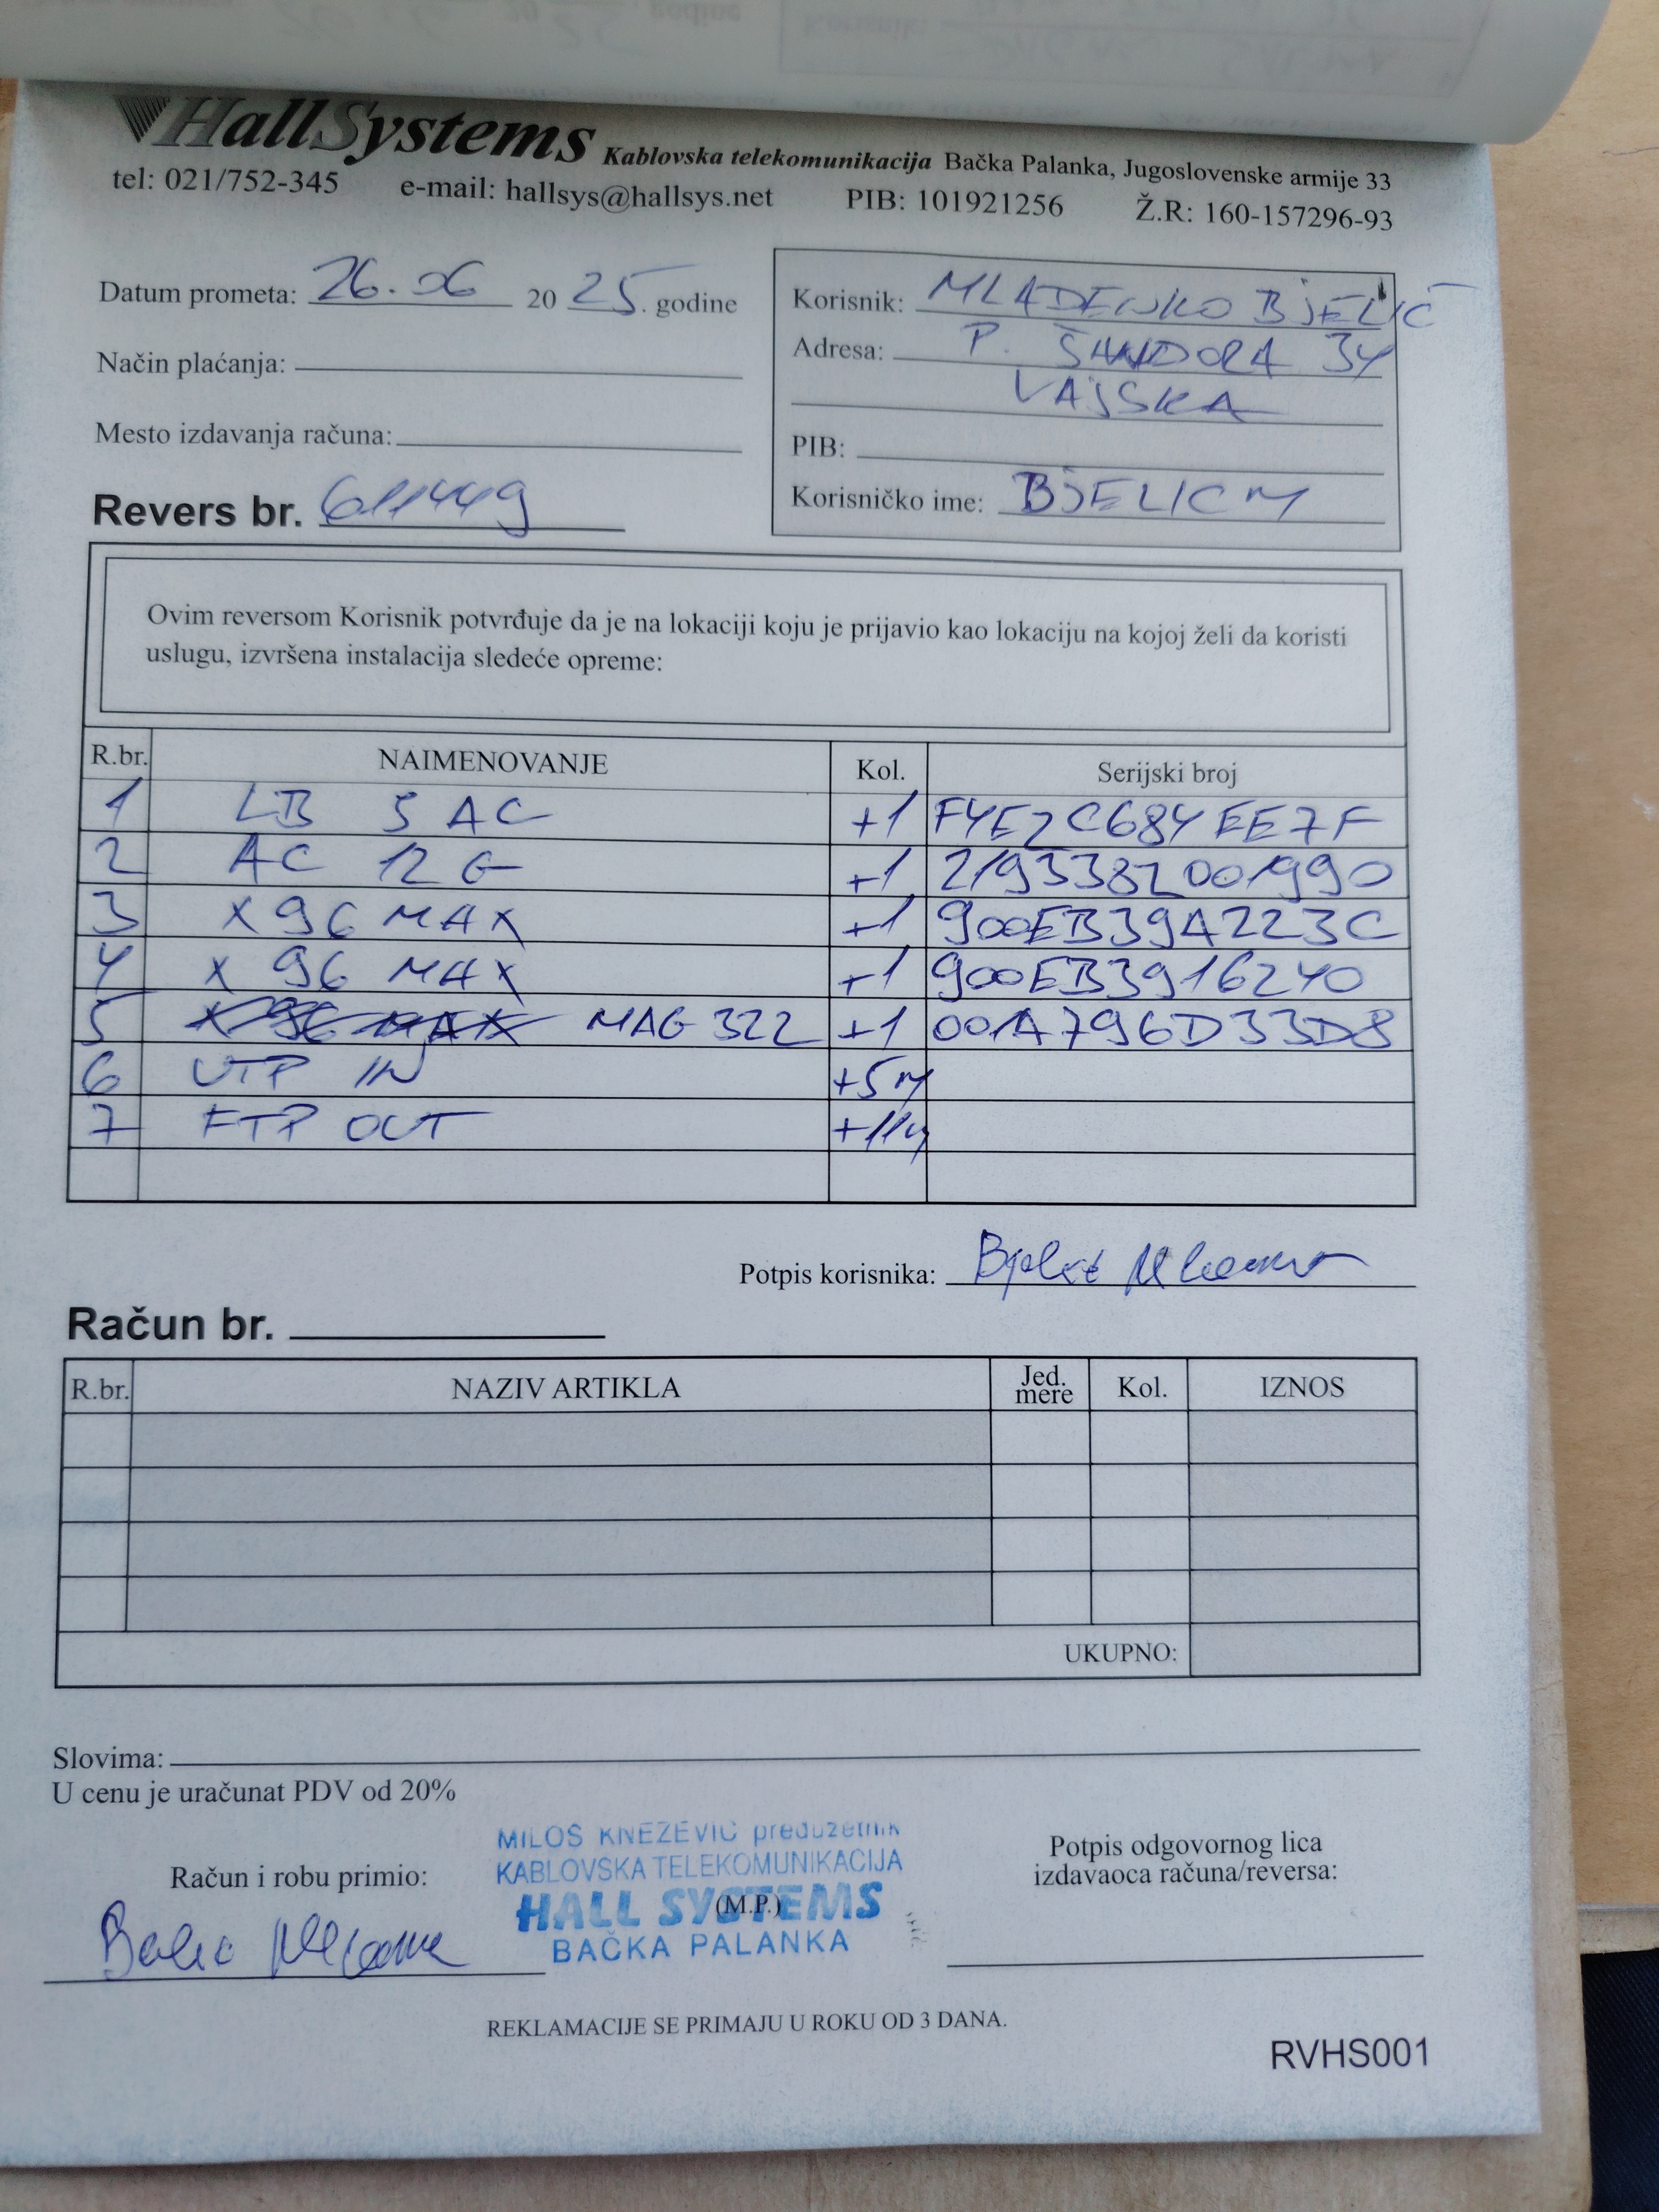 HallSystems Kablovska telekomunikacija Bačka Palanka, Jugoslovenske armije 33
tel: 021/752-345 e-mail: hallsys@hallsys.net PIB: 101921256 Ž.R: 160-157296-93
Datum prometa: 26.06 2025. godine
Način plaćanja:
Mesto izdavanja računa:
Revers br. 611449
Korisnik: MLADENKO BJELIĆ
Adresa: P. ŠANDORA 34
VAJSKA
PIB:
Korisničko ime: BJELICM
Ovim reversom Korisnik potvrđuje da je na lokaciji koju je prijavio kao lokaciju na kojoj želi da koristi
uslugu, izvršena instalacija sledeće opreme:
R.br. NAIMENOVANJE Kol. Serijski broj
1 LB 5 AC +1 F4E2C684EE7F
2 AC 12 G +1 2193382001990
3 X96 MAX +1 900EB39A223C
4 X 96 MAX +1 900EB3916240
5 X 96 MAX MAG 322 +1 001A796D33D8
6 UTP IN +5m
7 FTP OUT +11m
Potpis korisnika:
Račun br.
R.br. NAZIV ARTIKLA Jed. mere Kol. IZNOS
UKUPNO:
Slovima:
U cenu je uračunat PDV od 20%
Račun i robu primio:
MILOŠ KNEŽEVIĆ preduzetnik
KABLOVSKA TELEKOMUNIKACIJA
HALL SYSTEMS
(M.P.)
BAČKA PALANKA
Potpis odgovornog lica
izdavaoca računa/reversa:
REKLAMACIJE SE PRIMAJU U ROKU OD 3 DANA.
RVHS001